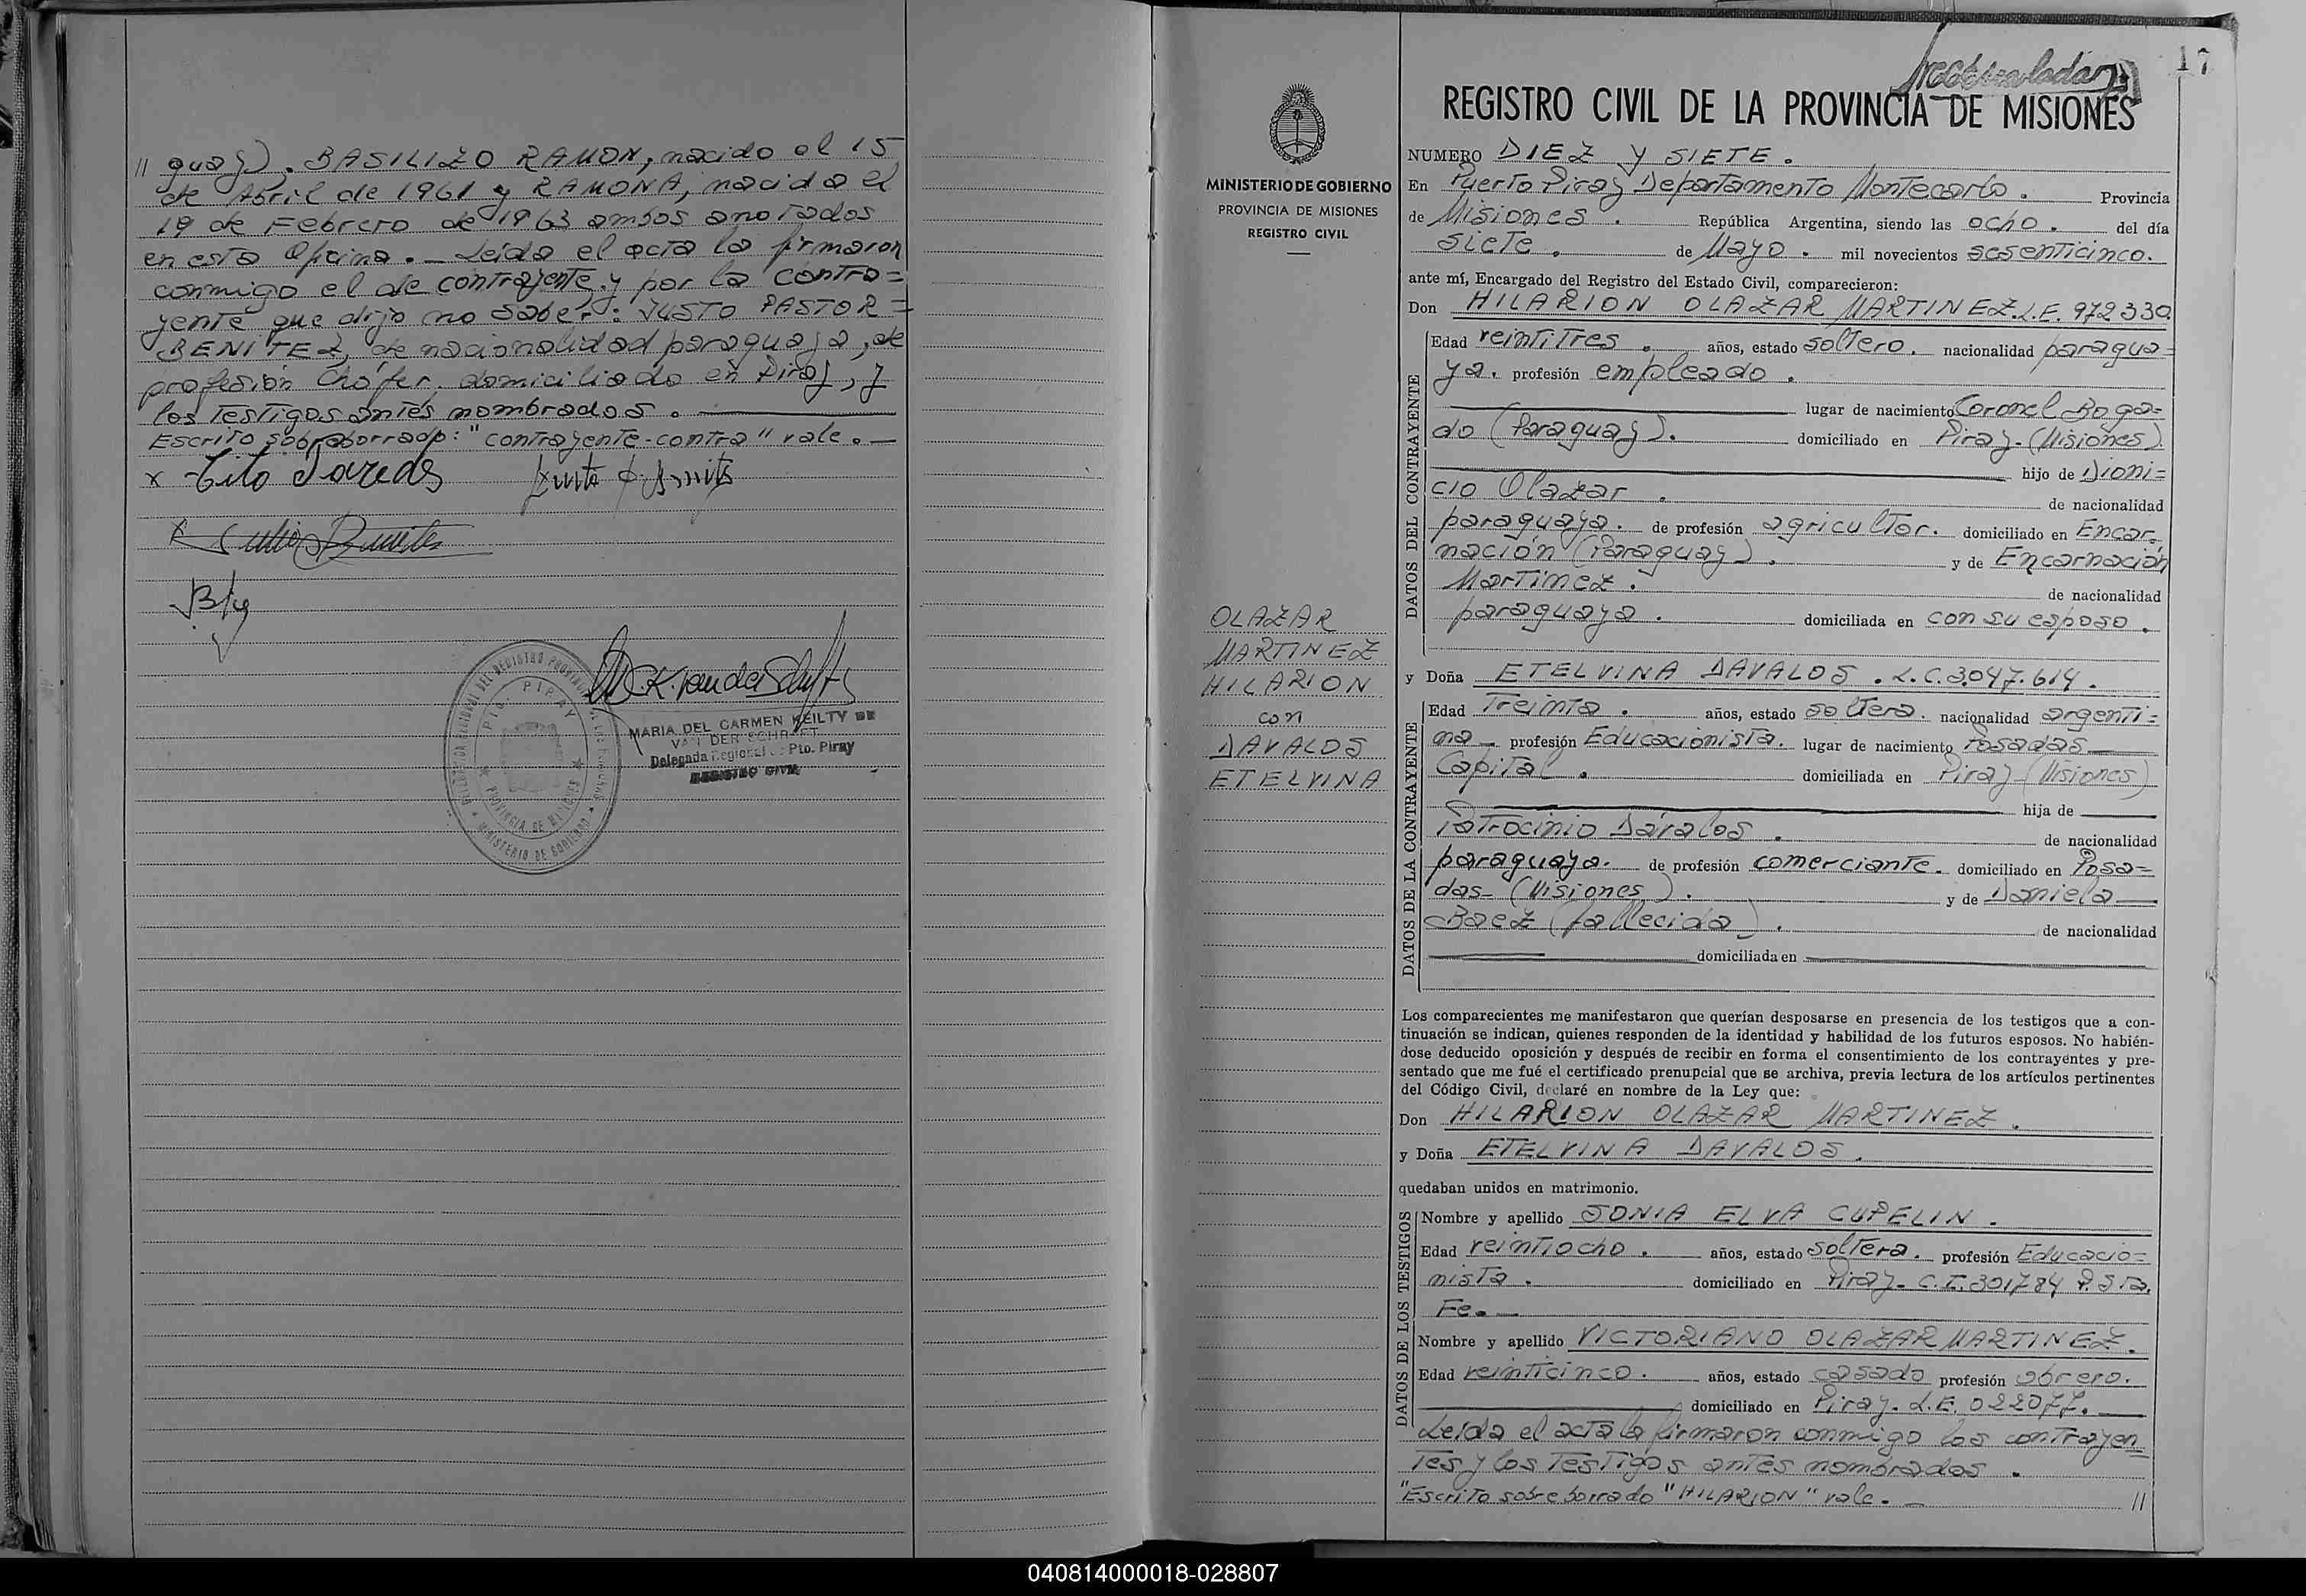 // guay). BASILIZO RAMON, nacido el 15
de Abril de 1961 y RAMONA, nacida el
19 de Febrero de 1963 ambos anotados
en esta Oficina. - Leída el acta la firmaron
conmigo el de contrayente y por la contra=
yente que dijo no saber: JUSTO PASTOR =
BENITEZ, de nacionalidad paraguaya, de
profesión Chófer, domiciliado en Piray, y
los testigos antes nombrados.
Escrito sobreborrado: "contrayente-contra" vale. -
x Tito Paredes
x Julio Benites
REGISTRO PROVINCIAL DE LAS PERSONAS
PTO. PIRAY
PROVINCIA DE MISIONES
MINISTERIO DE GOBIERNO
MARIA DEL CARMEN KEILTY DE
VAN DER SCHRAFT
Delegada Regional Pto. Piray
REGISTRO CIVIL
MINISTERIO DE GOBIERNO
PROVINCIA DE MISIONES
REGISTRO CIVIL
OLAZAR
MARTINEZ
HILARION
con
DAVALOS
ETELVINA
17
REGISTRO CIVIL DE LA PROVINCIA DE MISIONES
NUMERO DIEZ Y SIETE.
En Puerto Piray Departamento Montecarlo. Provincia
de Misiones. República Argentina, siendo las ocho. del día
siete. de Mayo. mil novecientos sesenticinco.
ante mí, Encargado del Registro del Estado Civil, comparecieron:
Don HILARION OLAZAR MARTINEZ.L.E. 972330
DATOS DEL CONTRAYENTE
Edad veintitres. años, estado soltero. nacionalidad paragua=
ya. profesión empleado.
lugar de nacimiento Coronel Boga=
do (Paraguay). domiciliado en Piray-(Misiones)
hijo de Dioni=
cio Olazar. de nacionalidad
paraguaya. de profesión agricultor. domiciliado en Encar=
nación (Paraguay). y de Encarnación
Martinez. de nacionalidad
paraguaya. domiciliada en con su esposo.
y Doña ETELVINA DAVALOS. L.C.3.047.614.
DATOS DE LA CONTRAYENTE
Edad Treinta. años, estado soltera. nacionalidad argenti=
na- profesión Educacionista. lugar de nacimiento Posadas
Capital. domiciliada en Piray-(Misiones)
hija de
Patrocinio Dávalos. de nacionalidad
paraguaya. de profesión comerciante. domiciliado en Posa=
das- (Misiones). y de Daniela
Baez (fallecida). de nacionalidad
domiciliada en
Los comparecientes me manifestaron que querían desposarse en presencia de los testigos que a con-
tinuación se indican, quienes responden de la identidad y habilidad de los futuros esposos. No habién-
dose deducido oposición y después de recibir en forma el consentimiento de los contrayentes y pre-
sentado que me fué el certificado prenupcial que se archiva, previa lectura de los artículos pertinentes
del Código Civil, declaré en nombre de la Ley que:
Don HILARION OLAZAR MARTINEZ.
y Doña ETELVINA DAVALOS.
quedaban unidos en matrimonio.
DATOS DE LOS TESTIGOS
Nombre y apellido SONIA ELVA CUPELIN.
Edad veintiocho. años, estado soltera. profesión Educacio=
nista. domiciliado en Piray- C.I.301784 P. Sta.
Fe.-
Nombre y apellido VICTORIANO OLAZAR MARTINEZ.
Edad veinticinco. años, estado casado profesión obrero.
domiciliado en Piray- L.E. 022077.
Leída el acta la firmaron conmigo los contrayen=
tes y los testigos antes nombrados.
"Escrito sobreborrado "HILARION" vale. - //
040814000018-028807